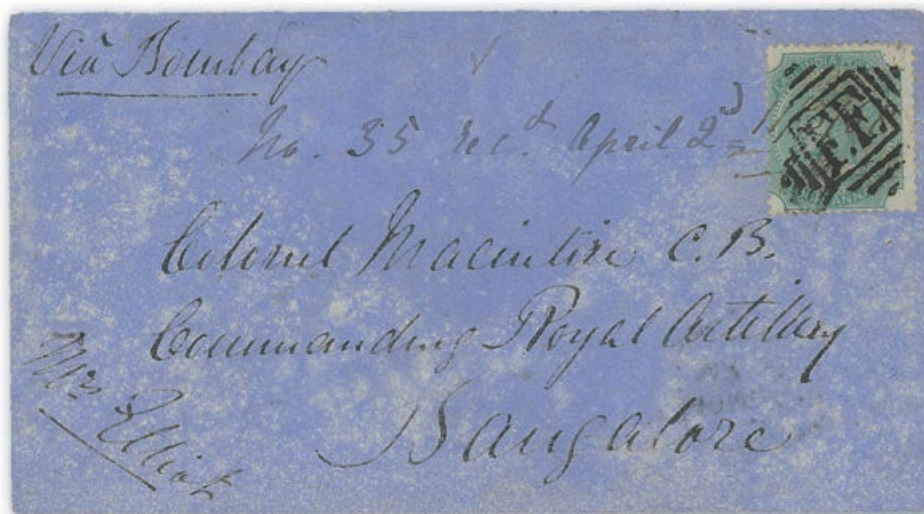 Via Bombay
No. 35 recd. April 2d
Colonel Macintire C.B.
Commanding Royal Artillery
Bangalore
Mrs Elliot
F.F.